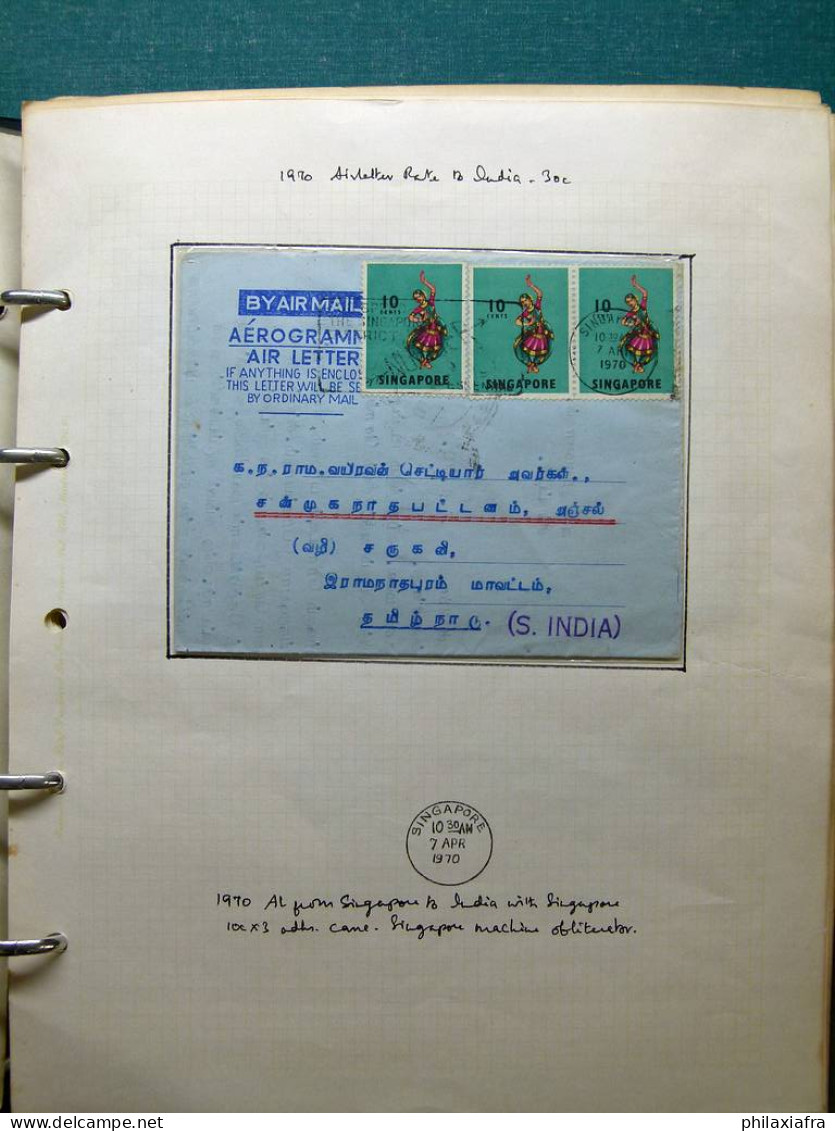 1970 Airletter Rate to India - 30c
BY AIR MAIL
AÉROGRAMM
AIR LETTER
IF ANYTHING IS ENCLOS
THIS LETTER WILL BE SE
BY ORDINARY MAIL
10 CENTS SINGAPORE
10 CENTS SINGAPORE
10 SINGAPORE
THE SINGAPORE
7 AP
1970
க.ந.ராம.வயிரவன் செட்டியார் அவர்கள்.,
சன்முகநாதபட்டனம், அஞ்சல்
(வழி) சருகவி,
இராமநாதபுரம் மாவட்டம்,
தமிழ்நாடு. (S. INDIA)
SINGAPORE
10 30AM
7 APR
1970
1970 AL from Singapore to India with Singapore
10c x 3 adhs. canc. Singapore machine obliterator.
philaxiafra